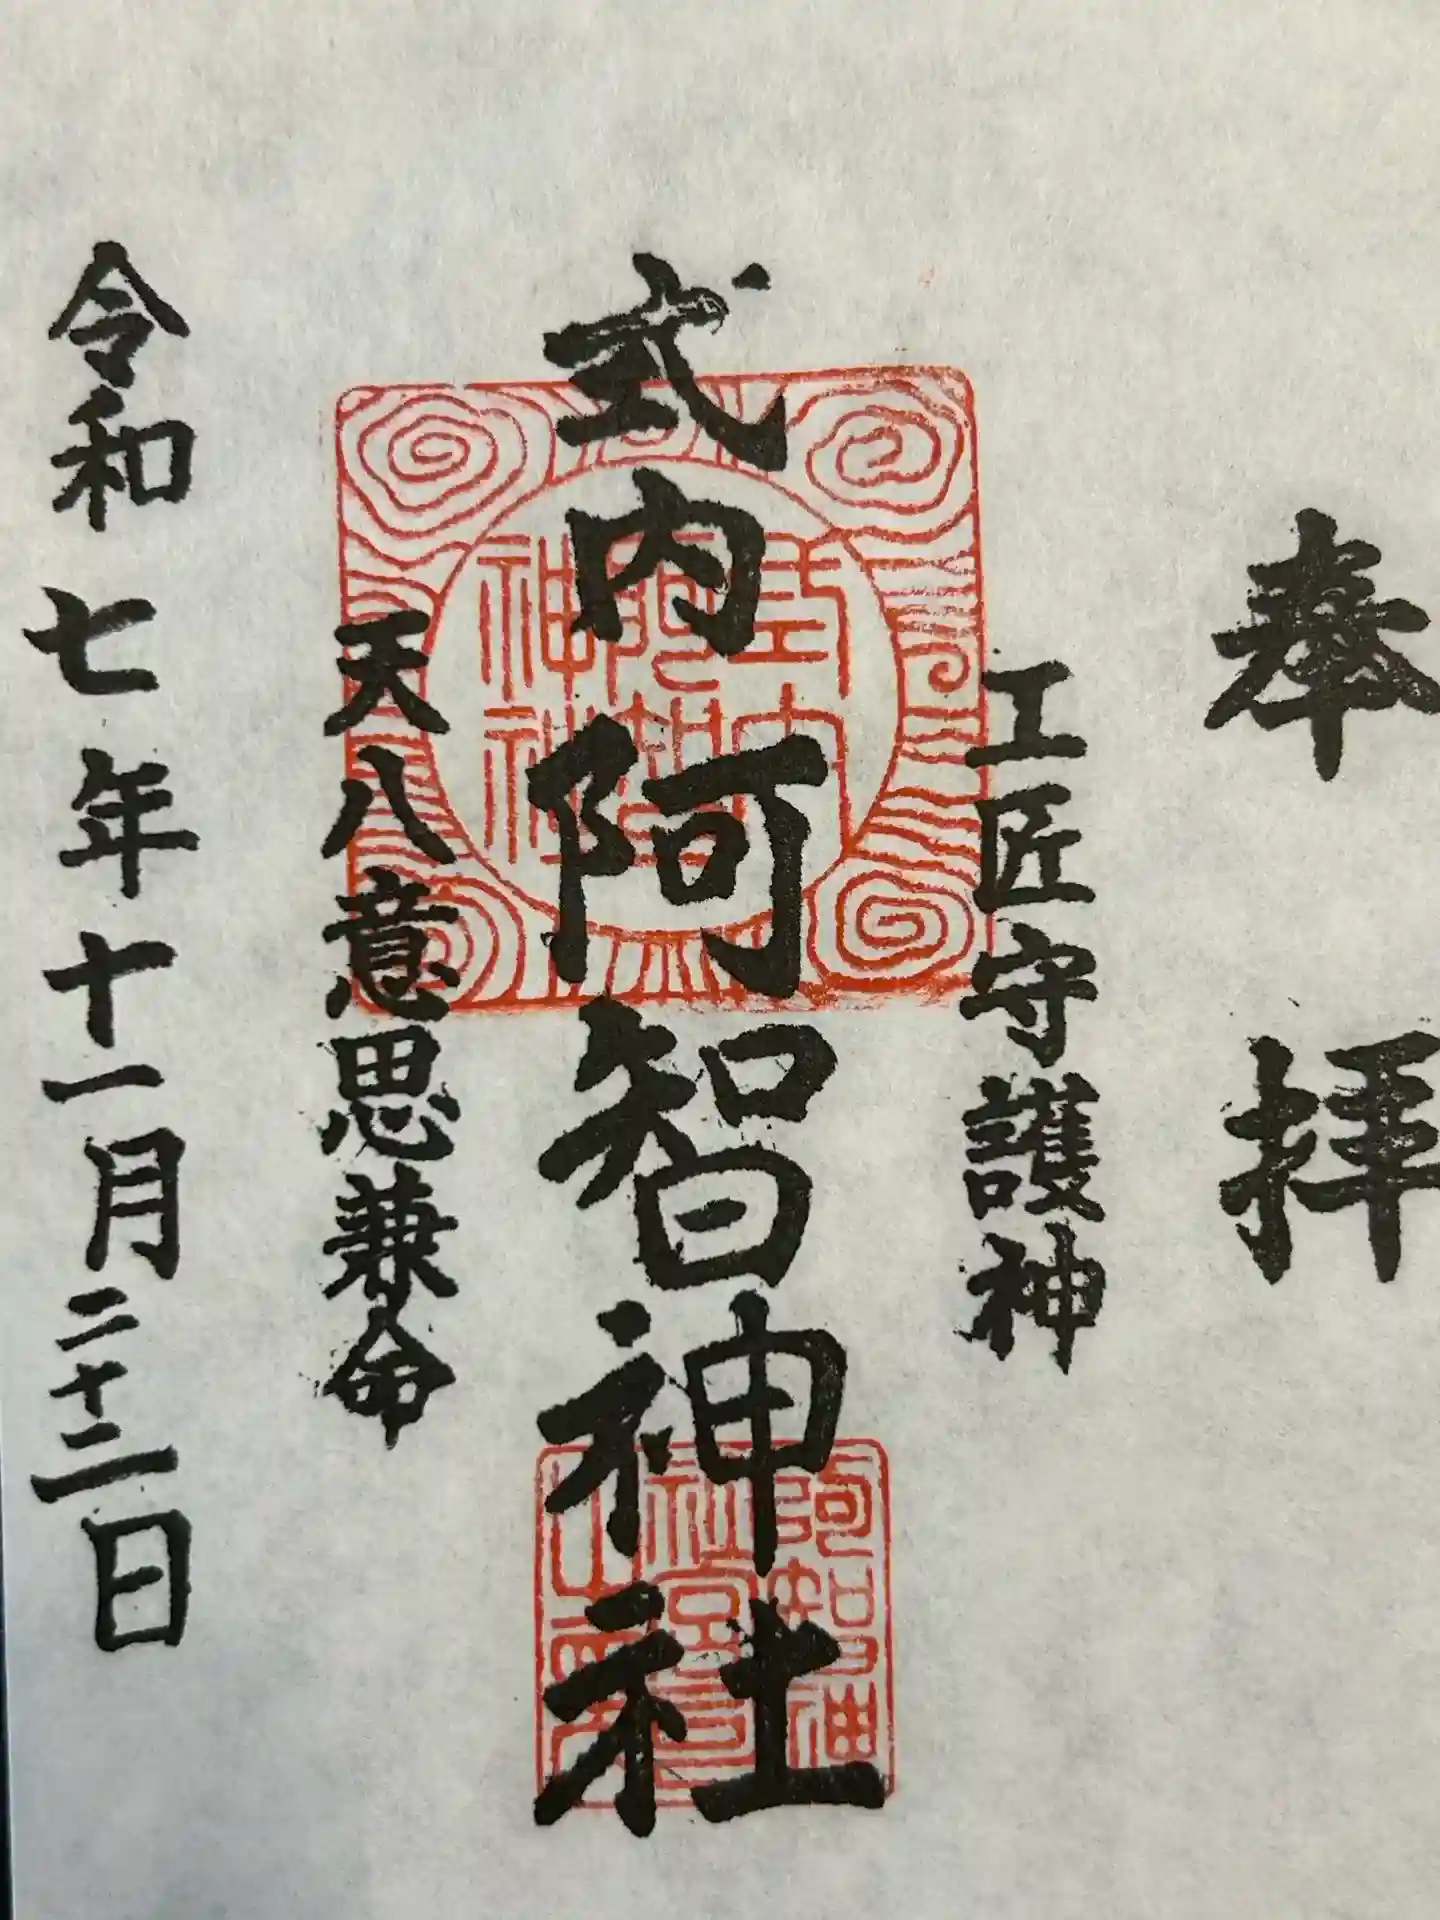 奉拝
工匠守護神
式内阿智神社
天八意思兼命
令和七年十一月二十二日
式内
阿智
神社
阿智神
社宮司
之印